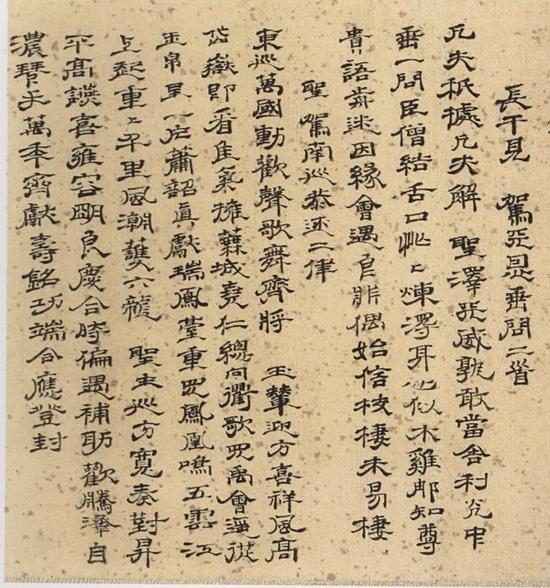 長干見 駕亟垂問二首
凡夫祇據凡夫解 聖澤天威孰敢當舍利光中
垂一問臣僧結舌口忙忙煉澤耳心似木雞那知尊
貴語前迷因緣會遇良非偶始信枝棲未易棲
聖駕南巡恭迎二律
東巡萬國動歡聲歌舞齊將 玉輦迎方喜祥風高
岱嶽即看佳氣擁蕪城堯仁總向衢歌見禹會遙從
玉帛呈一片簫韶真獻瑞鳳臺重見鳳凰鳴五雲江
上起重重千里風潮護六龍 聖主巡方寬奏對昇
平高讌喜雍容明良慶合時偏遇補助歡騰澤自
濃萬年齊獻壽銘功端合應登封